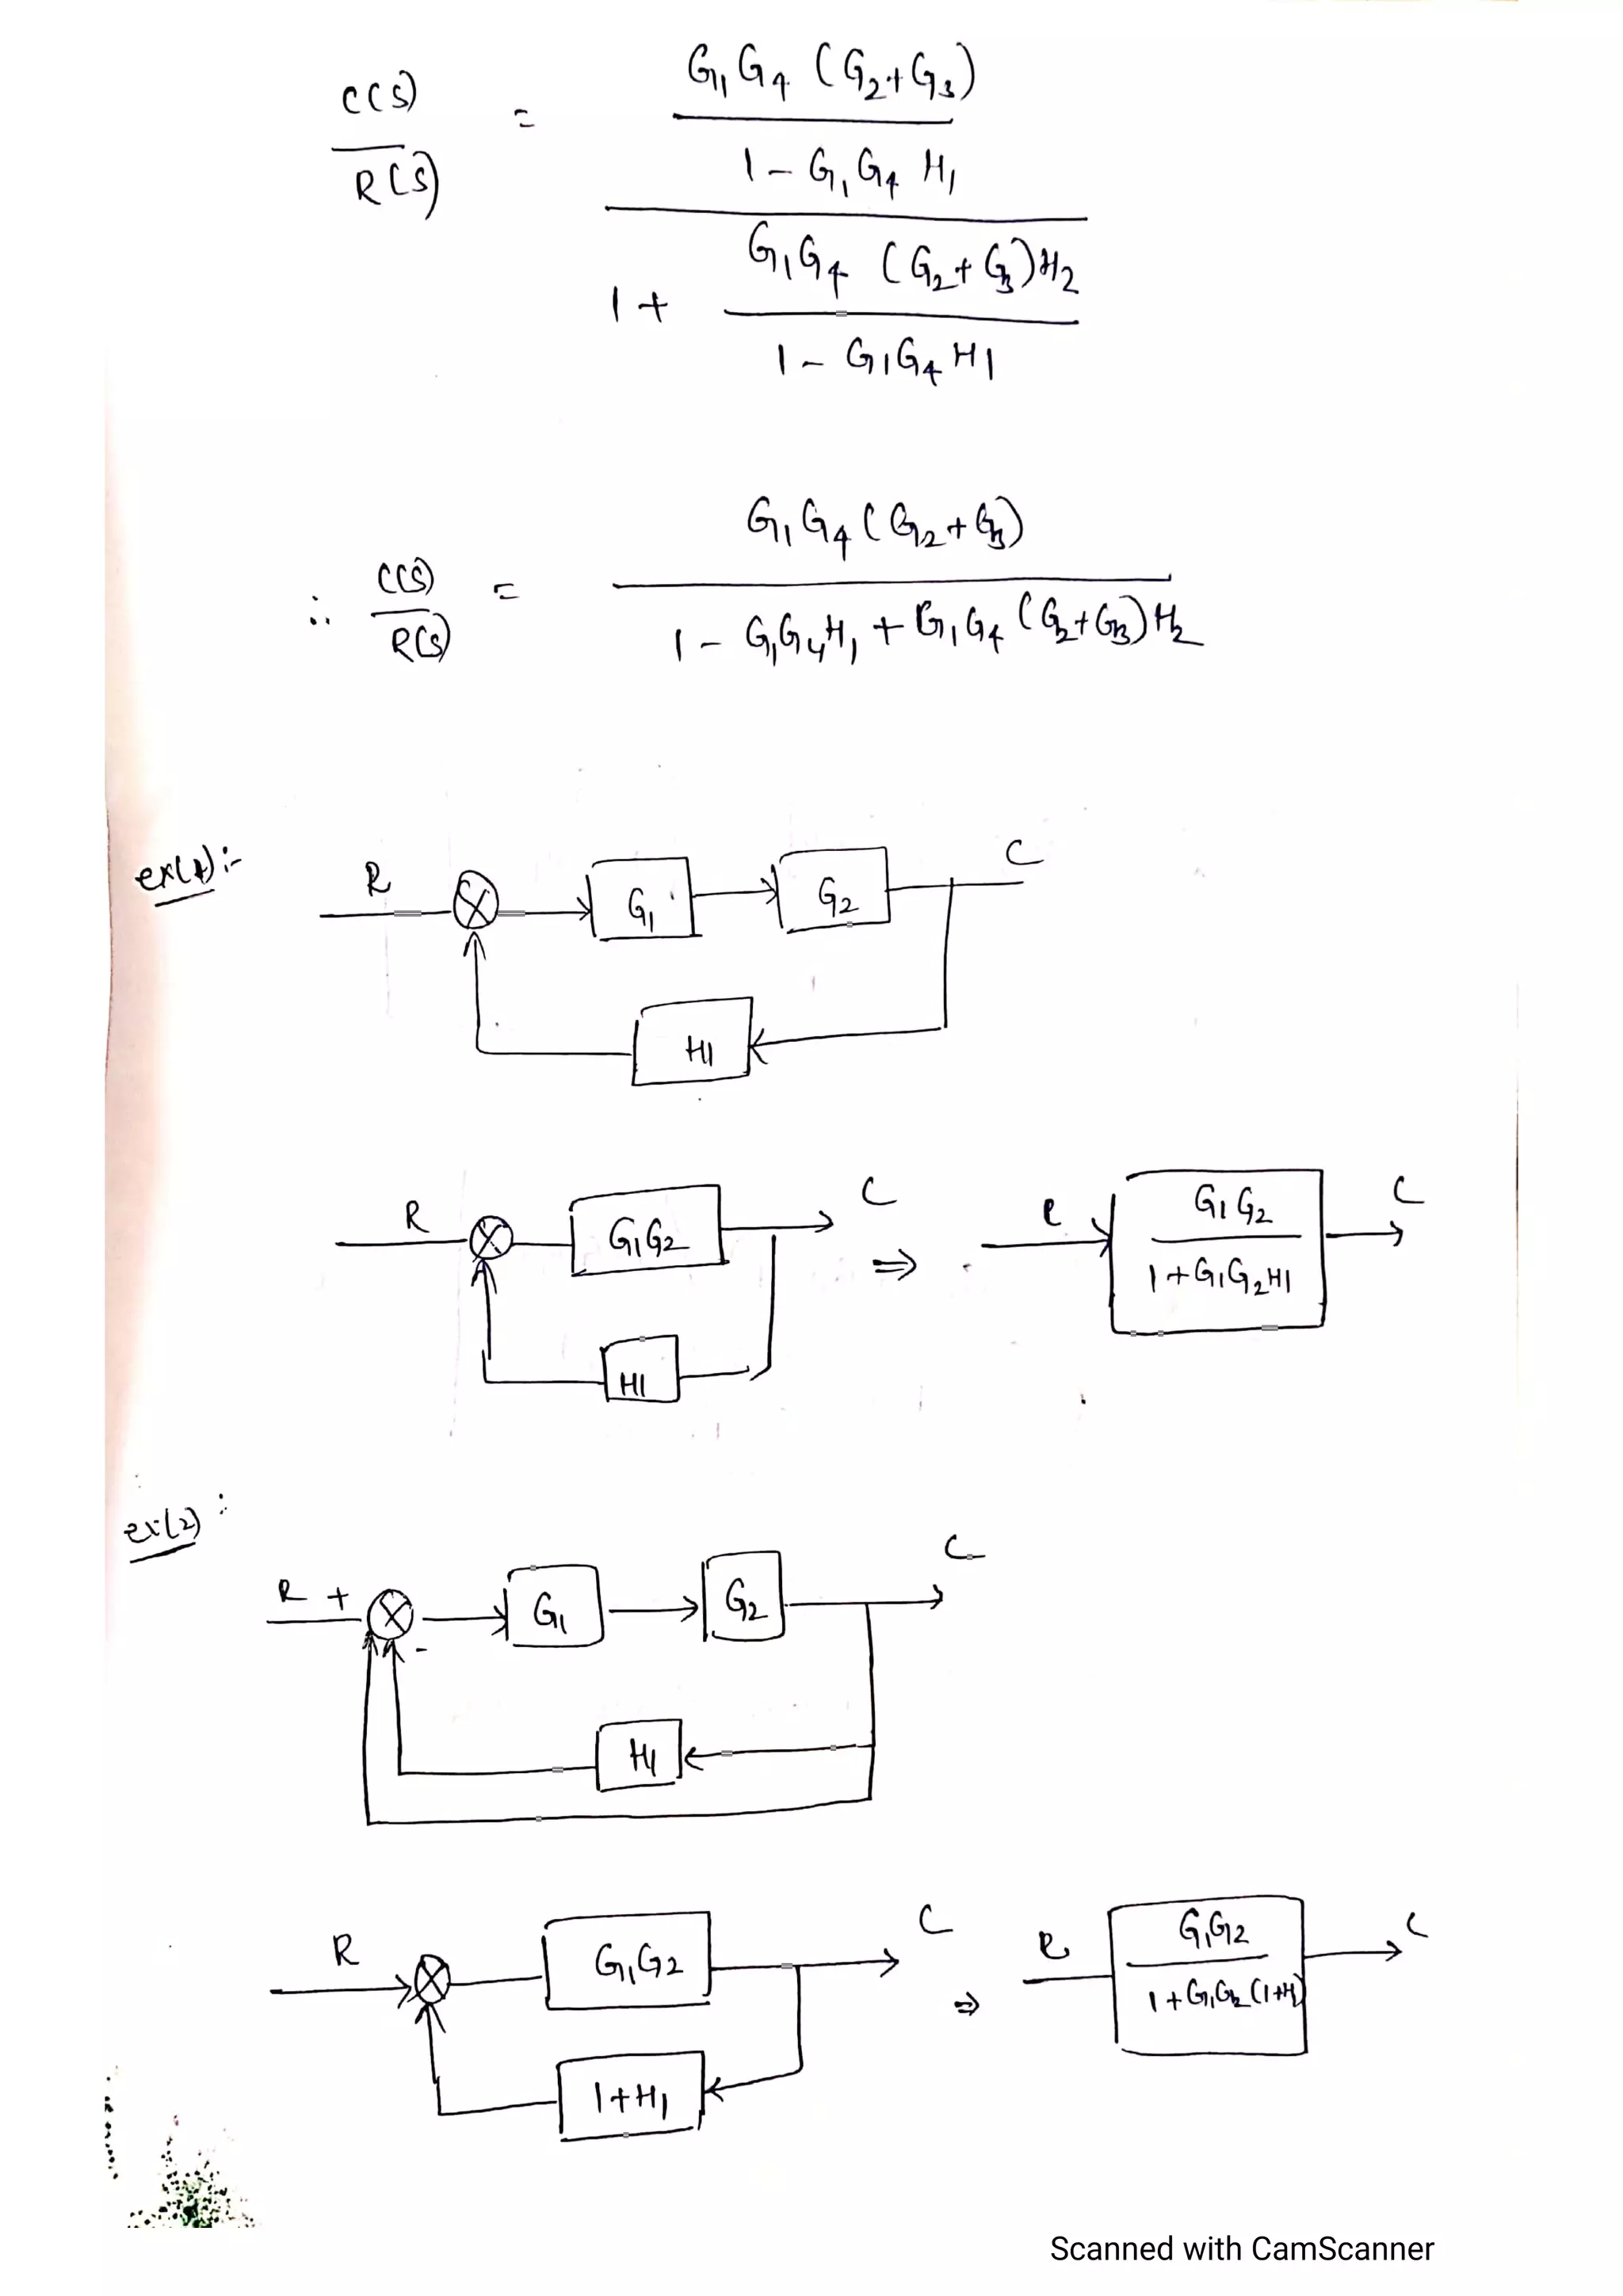 C(S) = G1 G4 (G2+G3)
R(S) 1 - G1 G4 H1
1 + G1G4 (G2+G3)H2
1 - G1G4 H1
∴ C(S) = G1 G4 (G2+G3)
R(S) 1 - G1G4H1 + G1G4 (G2+G3)H2
ex(1):-
R G1 G2 C
H1
R G1G2 C ⇒ R G1 G2 C
1+G1G2H1
H1
ex(2):
R + G1 G2 C
-
H1
R G1G2 C ⇒ R G1G2 C
1+G1G2(1+H1)
1+H1
Scanned with CamScanner